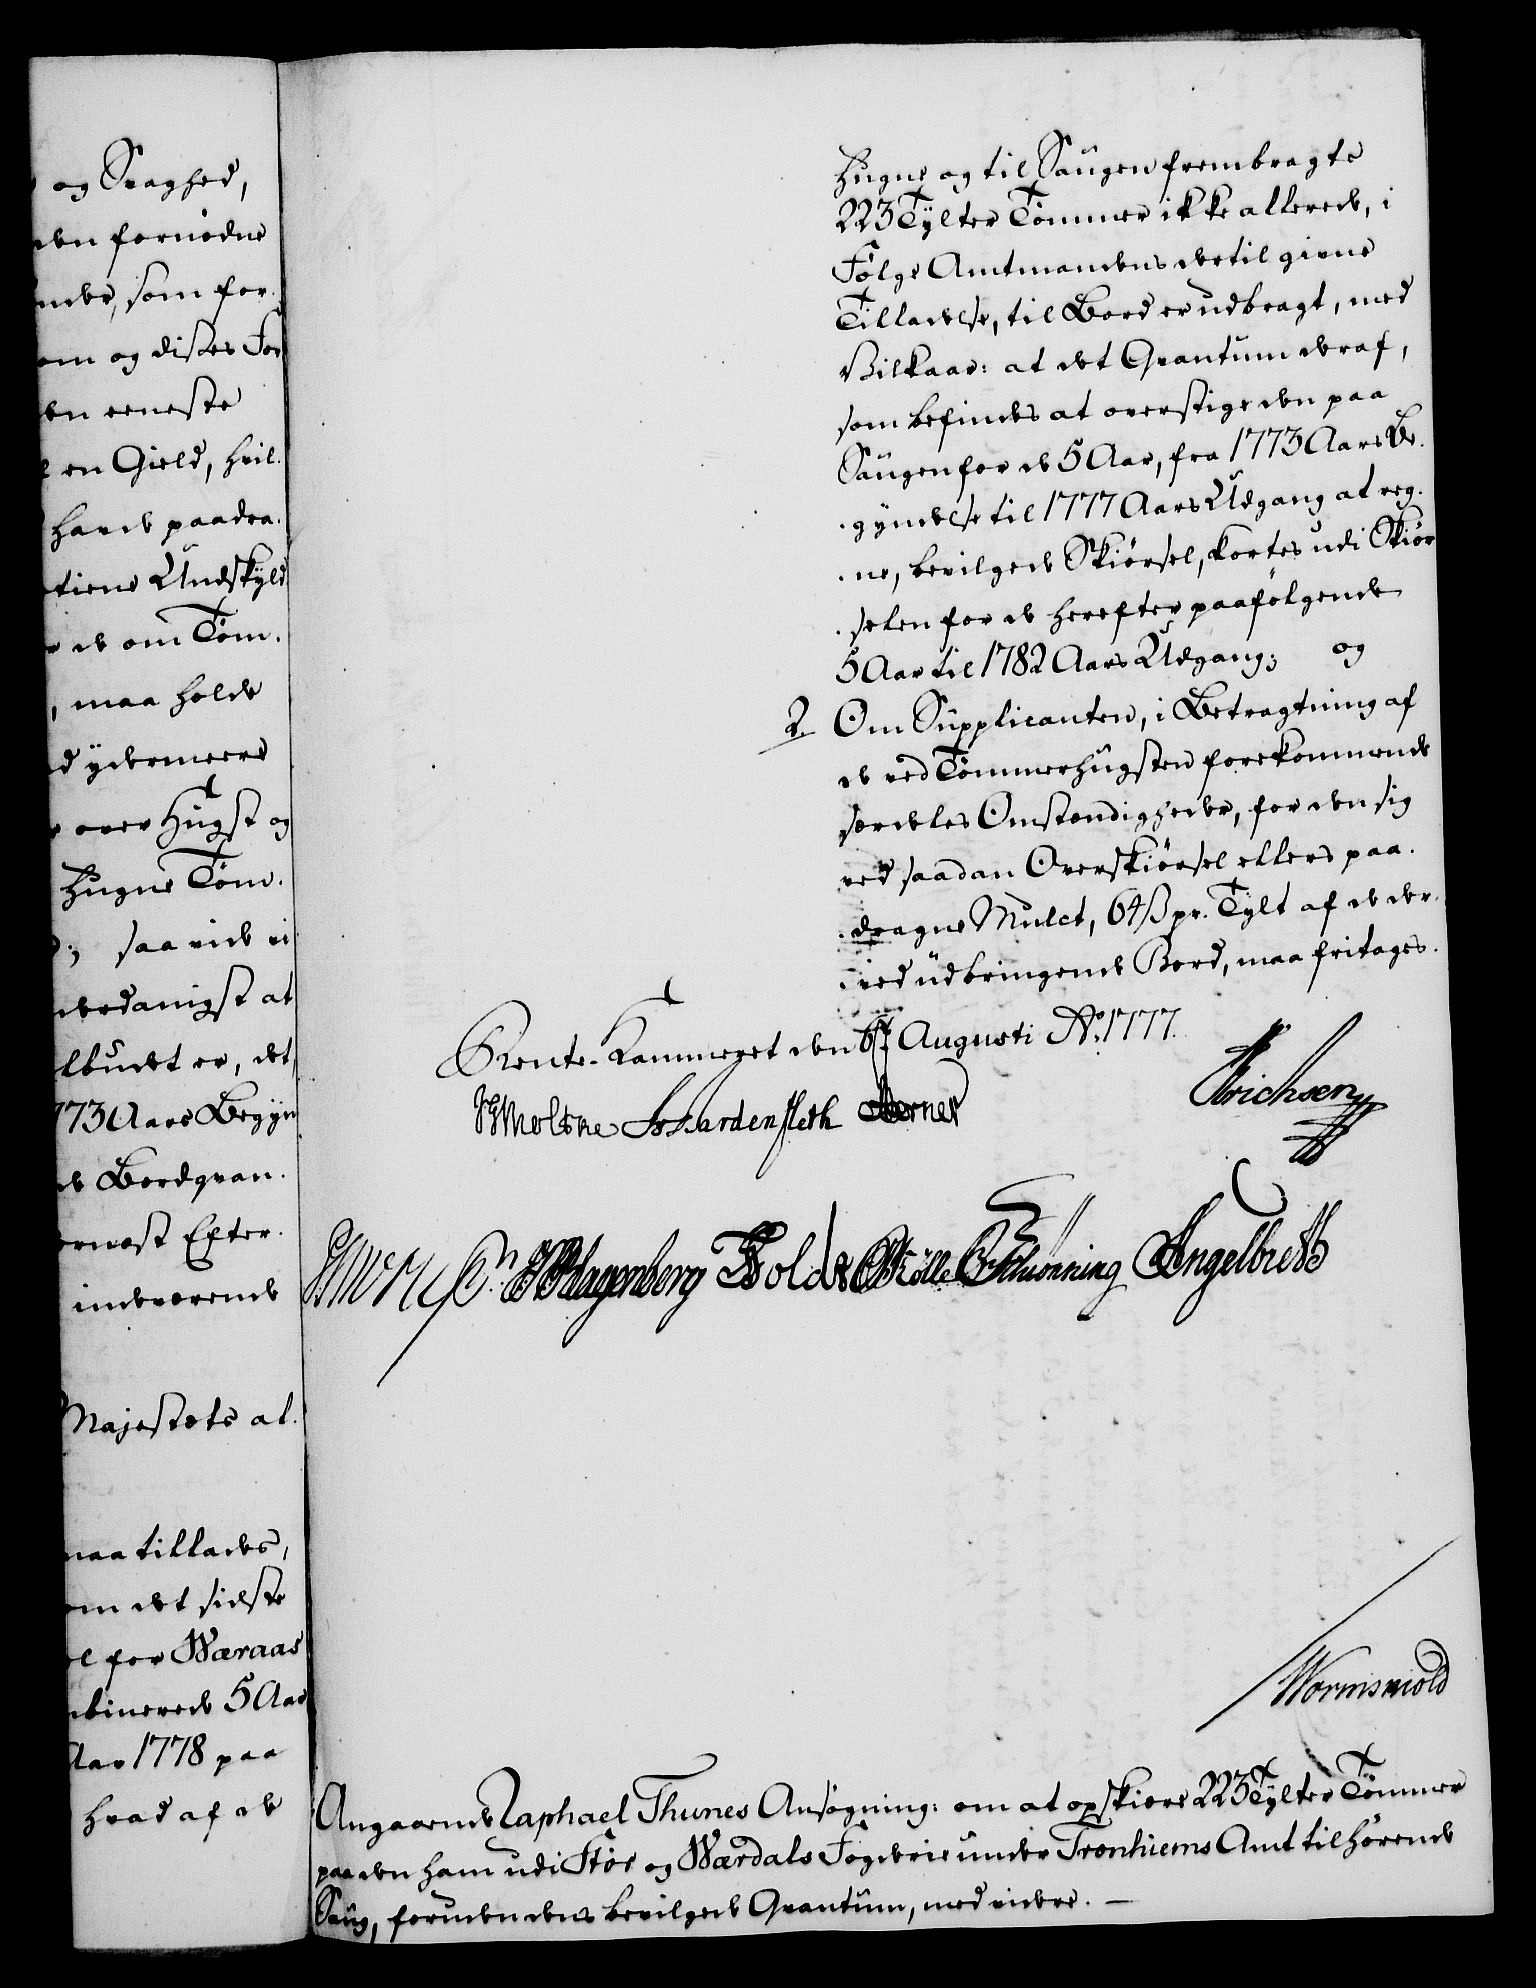 og Svaghed,
den fornødne
som for-
om og disses For
den eeneste
en Gield, hvil-
havde paadra-
Undskyld
de om Tøm-
, maa holde
ydermeere
over Hugst og
hugne Tøm-
; saavide vi
at
er, det
1773 Aars Begyn
Bordqvan-
Efter-
indeværende
Majestæts al-
maa tillades,
om det sidste
for Wæraas
5 Aar
Aar 1778 paa
hvad af de
hugne og til Saugen frembragte
223 Tylter Tømmer ikke allerede, i
Følge Amtmandens dertil givne
Tilladelse, til Bord er udbragt, med
Vilkaar: at det Qvantum deraf,
som befindes at overstige den paa
Saugen for de 5 Aar, fra 1773 Aars Be-
-gyndelse til 1777 Aars Udgang at reg-
-ne, bevilgede Skiørsel, kortes udi Skiør
-selen for de herefter paafølgende
5 Aar til 1782 Aars Udgang; og
2. Om Supplicanten, i Betragtning af
de ved Tømmerhugsten forekommende
særdeles Omstændigheder, for den sig
ved saadan Overskiørsel ellers paa-
-dragne Mulct, 64 ß pr. Tylt af de der-
-ved udbringende Bord, maa fritages.
Rente-Kammeret den 6te Augusti Ao. 1777.
Moltke Hardenfleth Berner Erichsen
Klagenberg Holdt Rølle Schwonning Engelbreth
Wormskiold
Angaaende Raphael Thunes Ansøgning: om at opskiære 223 Tylter Tømmer
paa den ham udi Stør og Wærdals Fogderie under Tronhiems Amt tilhørende
Saug, foruden dens bevilgede Qvantum, med videre. —